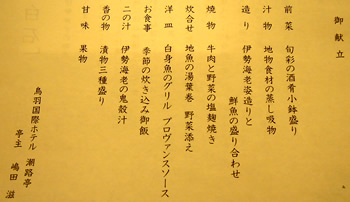 御献立
前菜 旬彩の酒肴小鉢盛り
汁物 地物食材の蒸し吸物
造り 伊勢海老姿造りと
鮮魚の盛り合わせ
焼物 牛肉と野菜の塩麹焼き
炊合せ 地魚の湯葉巻 野菜添え
洋皿 白身魚のグリル プロヴァンスソース
お食事 季節の炊き込み御飯
二の汁 伊勢海老の鬼殻汁
香の物 漬物三種盛り
甘味 果物
鳥羽国際ホテル 潮路亭
亭主 嶋田 滋